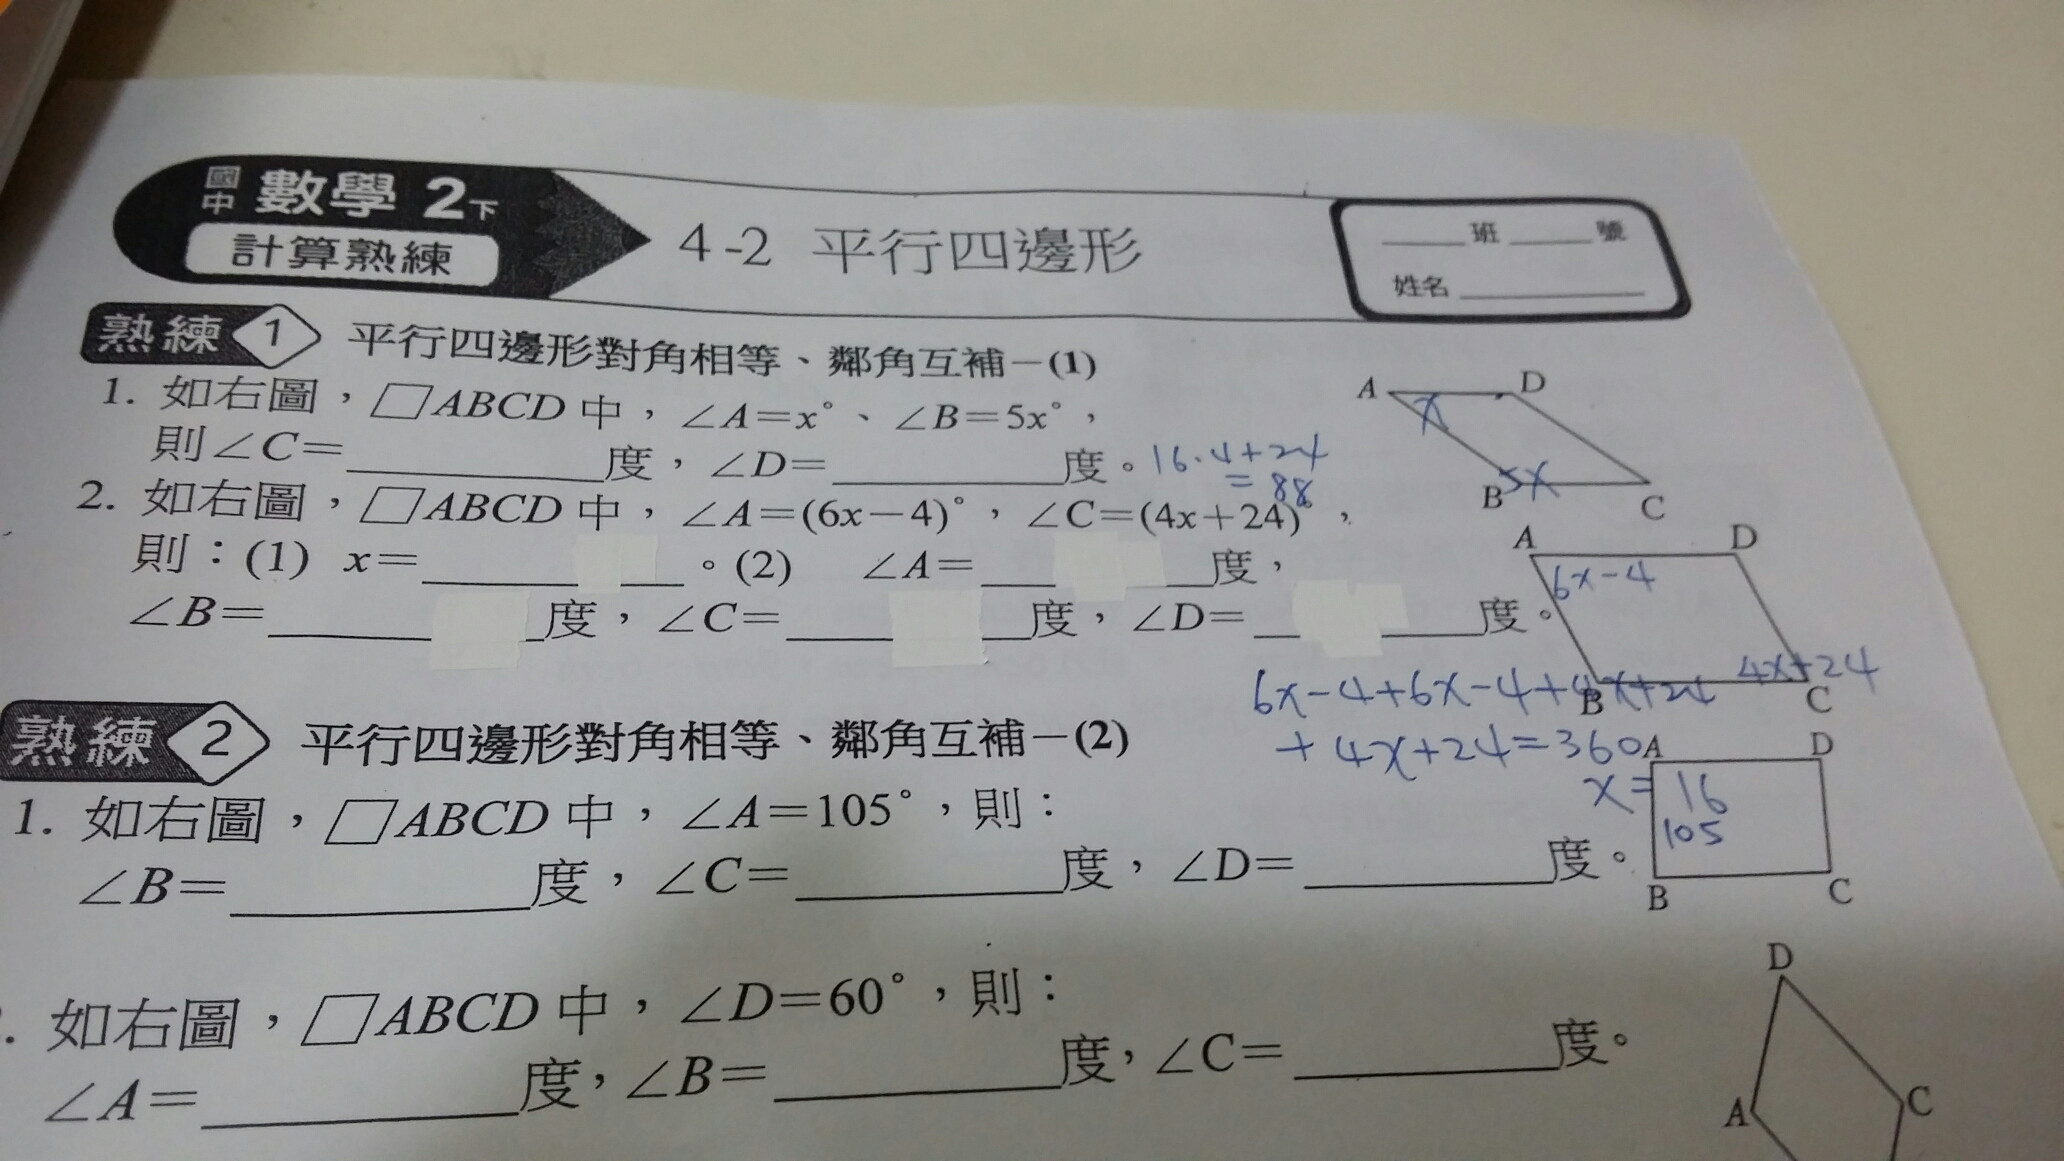 國中 數學 2下
計算熟練
4-2 平行四邊形
____班____號
姓名________
熟練 1 平行四邊形對角相等、鄰角互補－(1)
1. 如右圖，▱ABCD 中，∠A=x°、∠B=5x°，
則∠C=________度，∠D=________度。
16.4+24
=88
A D
x
B 5x C
2. 如右圖，▱ABCD 中，∠A=(6x－4)°，∠C=(4x+24)°，
則：(1) x=________。(2) ∠A=________度，
∠B=________度，∠C=________度，∠D=________度。
A D
6x-4
4x+24
B C
6x-4+6x-4+4x+24
+4x+24=360
x=16
熟練 2 平行四邊形對角相等、鄰角互補－(2)
1. 如右圖，▱ABCD 中，∠A=105°，則：
∠B=________度，∠C=________度，∠D=________度。
A D
105
B C
. 如右圖，▱ABCD 中，∠D=60°，則：
∠A=________度，∠B=________度，∠C=________度。
D
A C